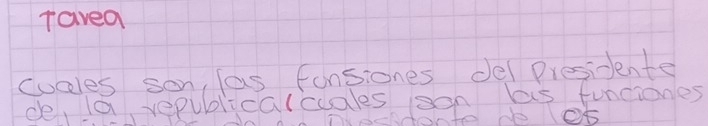 Tarea
cuales son, las funsiones del Presidente
de, la republica(cuales son las funciones
Presidente de les